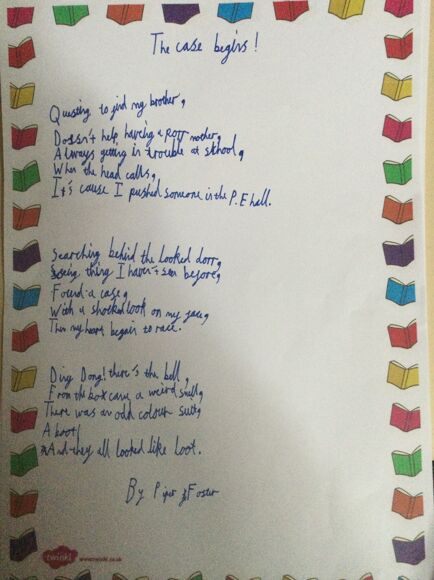 The case begins!
Questing to find my brother,
Doesn't help having a poor mother,
Always getting in trouble at school,
When the head calls,
It's cause I pushed someone in the P.E hall.
Searching behind the looked dorr,
Seeing thing I haven't seen before,
Found a case,
With a shocked look on my face,
Then my heart began to race.
Ding Dong! there's the bell,
From the box came a weird smell,
There was an odd colour suit,
A boot!
And they all looked like loot.
By Piper Foster
twinkl www.twinkl.co.uk